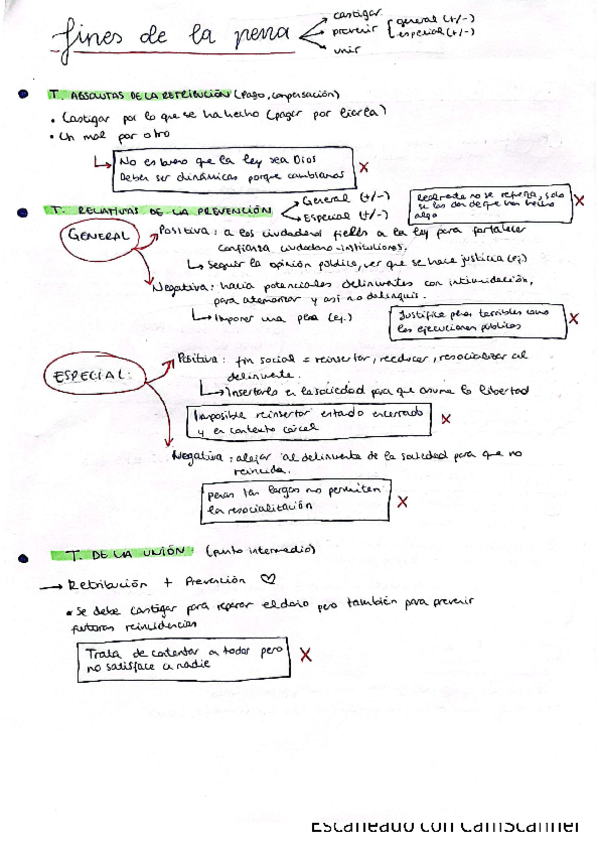 fines de la pena
castigar
prevenir general (+/-)
especial (+/-)
unir
T. ABSOLUTAS DE LA RETRIBUCIÓN (Pago, compensación)
• Castigar por lo que se ha hecho (pagar por
• Un mal por otro
No es bueno que la ley sea Dios
Deber ser dinámicas porque cambiamos
X
T. RELATIVAS DE LA PREVENCIÓN
General (+/-)
Especial (+/-)
Realmente no se refuerza, solo
se les da de que han hecho
algo
X
GENERAL
Positiva: a los ciudadanos fieles a la ley para fortalecer
confianza ciudadano-instituciones.
Seguir la opinión pública, ver que se hace justicia (ej)
Negativa: hacia potenciales delincuentes con intimidación,
para atemorizar y así no delinquir.
Imponer una pena (ej.)
Justifica penas terribles como
las ejecuciones públicas
X
ESPECIAL:
Positiva: fin social = reinsertar, reeducar, resocializar al
delincuente.
Insertarlo en la sociedad para que asuma la libertad
Imposible reinsertar estando encerrado
y en contexto cárcel
X
Negativa: alejar al delincuente de la sociedad para que no
reincida.
penas tan largas no permiten
la resocialización
X
T. DE LA UNIÓN: (punto intermedio)
→ Retribución + Prevención ♡
• Se debe castigar para reparar el daño pero también para prevenir
futuras reincidencias
Trata de contentar a todos pero
no satisface a nadie
X
Escaneado con CamScanner